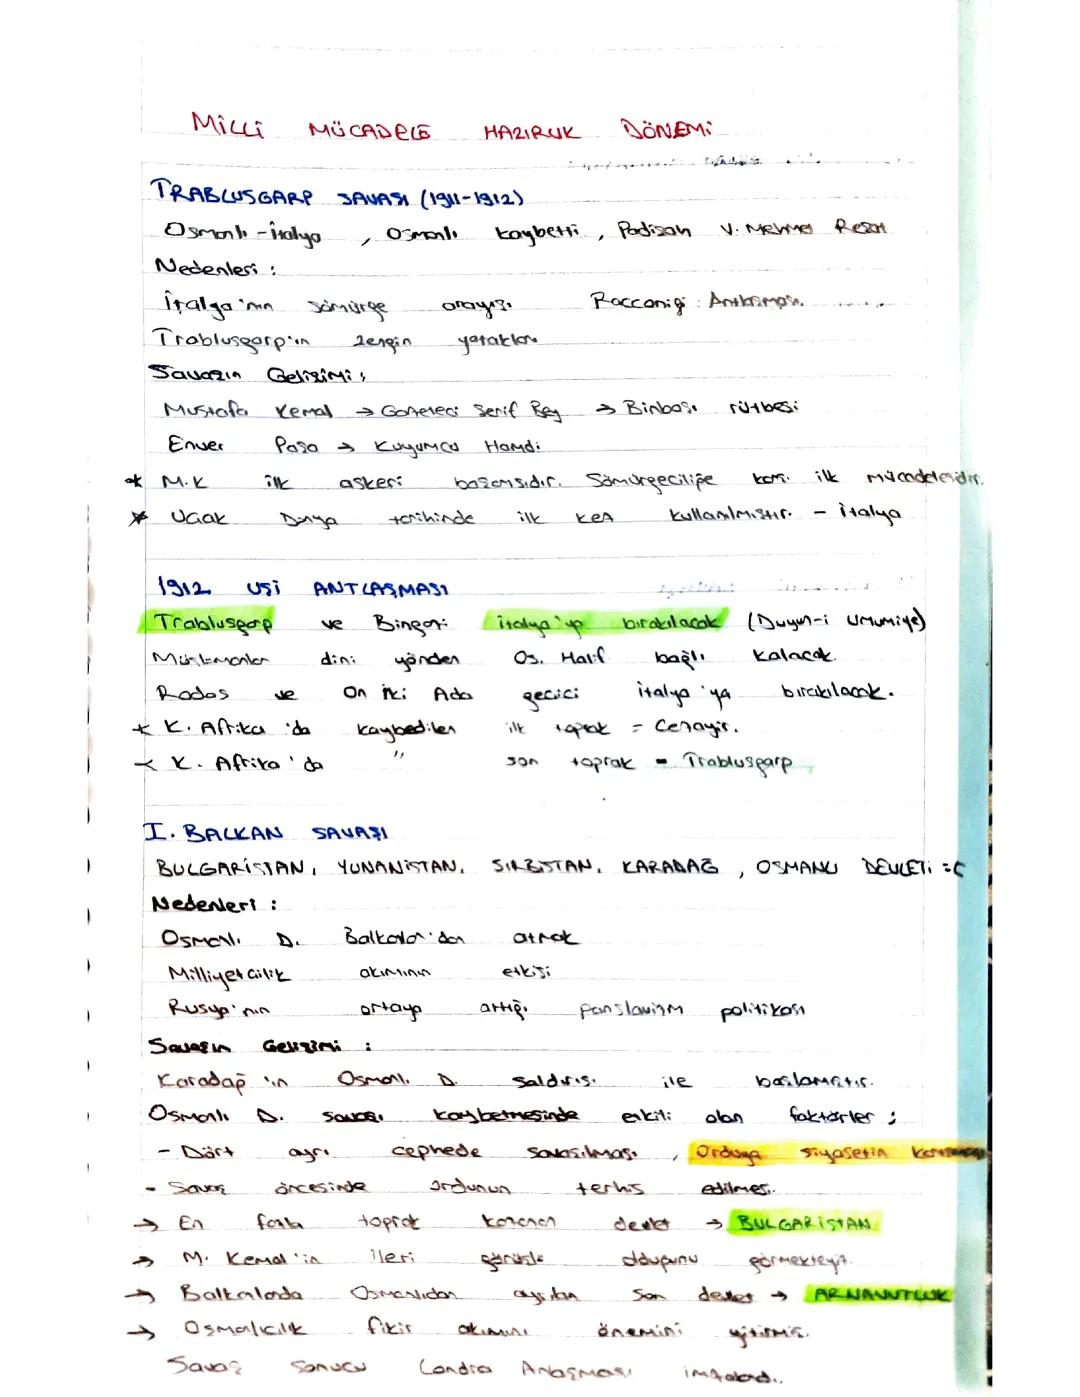 MİLLİ MÜCADELE HAZIRLIK DÖNEMİ
TRABLUSGARP SAVAŞI (1911-1912)
Osmanlı - İtalya, Osmanlı kaybetti, Padişah V. Mehmet Reşat
Nedenleri :
İtalya'nın sömürge arayışı Racconigi Antlaşması
Trablusgarp'ın zengin yatakları
Savaşın Gelişimi ;
Mustafa Kemal → Gazeteci Şerif Bey → Binbaşı rütbesi
Enver Paşa → Kuyumcu Hamdi
* M.K ilk askeri başarısıdır. Sömürgeciliğe karşı ilk mücadelesidir.
* Uçak Dünya tarihinde ilk kez kullanılmıştır. - İtalya
1912 UŞİ ANTLAŞMASI
Trablusgarp ve Bingazi İtalya'ya bırakılacak (Duyun-i Umumiye)
Müslümanlar dini yönden Os. Halif bağlı kalacak.
Rodos ve On İki Ada geçici İtalya'ya bırakılacak.
* K. Afrika'da kaybedilen ilk toprak = Cezayir.
* K. Afrika'da " son toprak = Trablusgarp
I. BALKAN SAVAŞI
BULGARİSTAN, YUNANİSTAN, SIRBİSTAN, KARADAĞ, OSMANLI DEVLETİ :(
Nedenleri :
Osmanlı D. Balkanlar'dan atmak
Milliyetçilik akımının etkisi
Rusya'nın ortaya attığı panslavizm politikası
Savaşın Gelişimi :
Karadağ'ın Osmanlı D. saldırışı ile başlamıştır.
Osmanlı D. savaşı kaybetmesinde etkili olan faktörler ;
- Dört ayrı cephede savaşılması, Orduya siyasetin karışması
- Savaş öncesinde ordunun terhis edilmesi.
→ En fazla toprak kazanan devlet → BULGARİSTAN
→ M. Kemal'in ileri görüşlü olduğunu görmekteyiz.
→ Balkanlarda Osmanlıdan ayrılan son devlet → ARNAVUTLUK
→ Osmalıcılık fikir akımını önemini yitirmiş.
Savaş sonucu Londra Anlaşması imzaland..